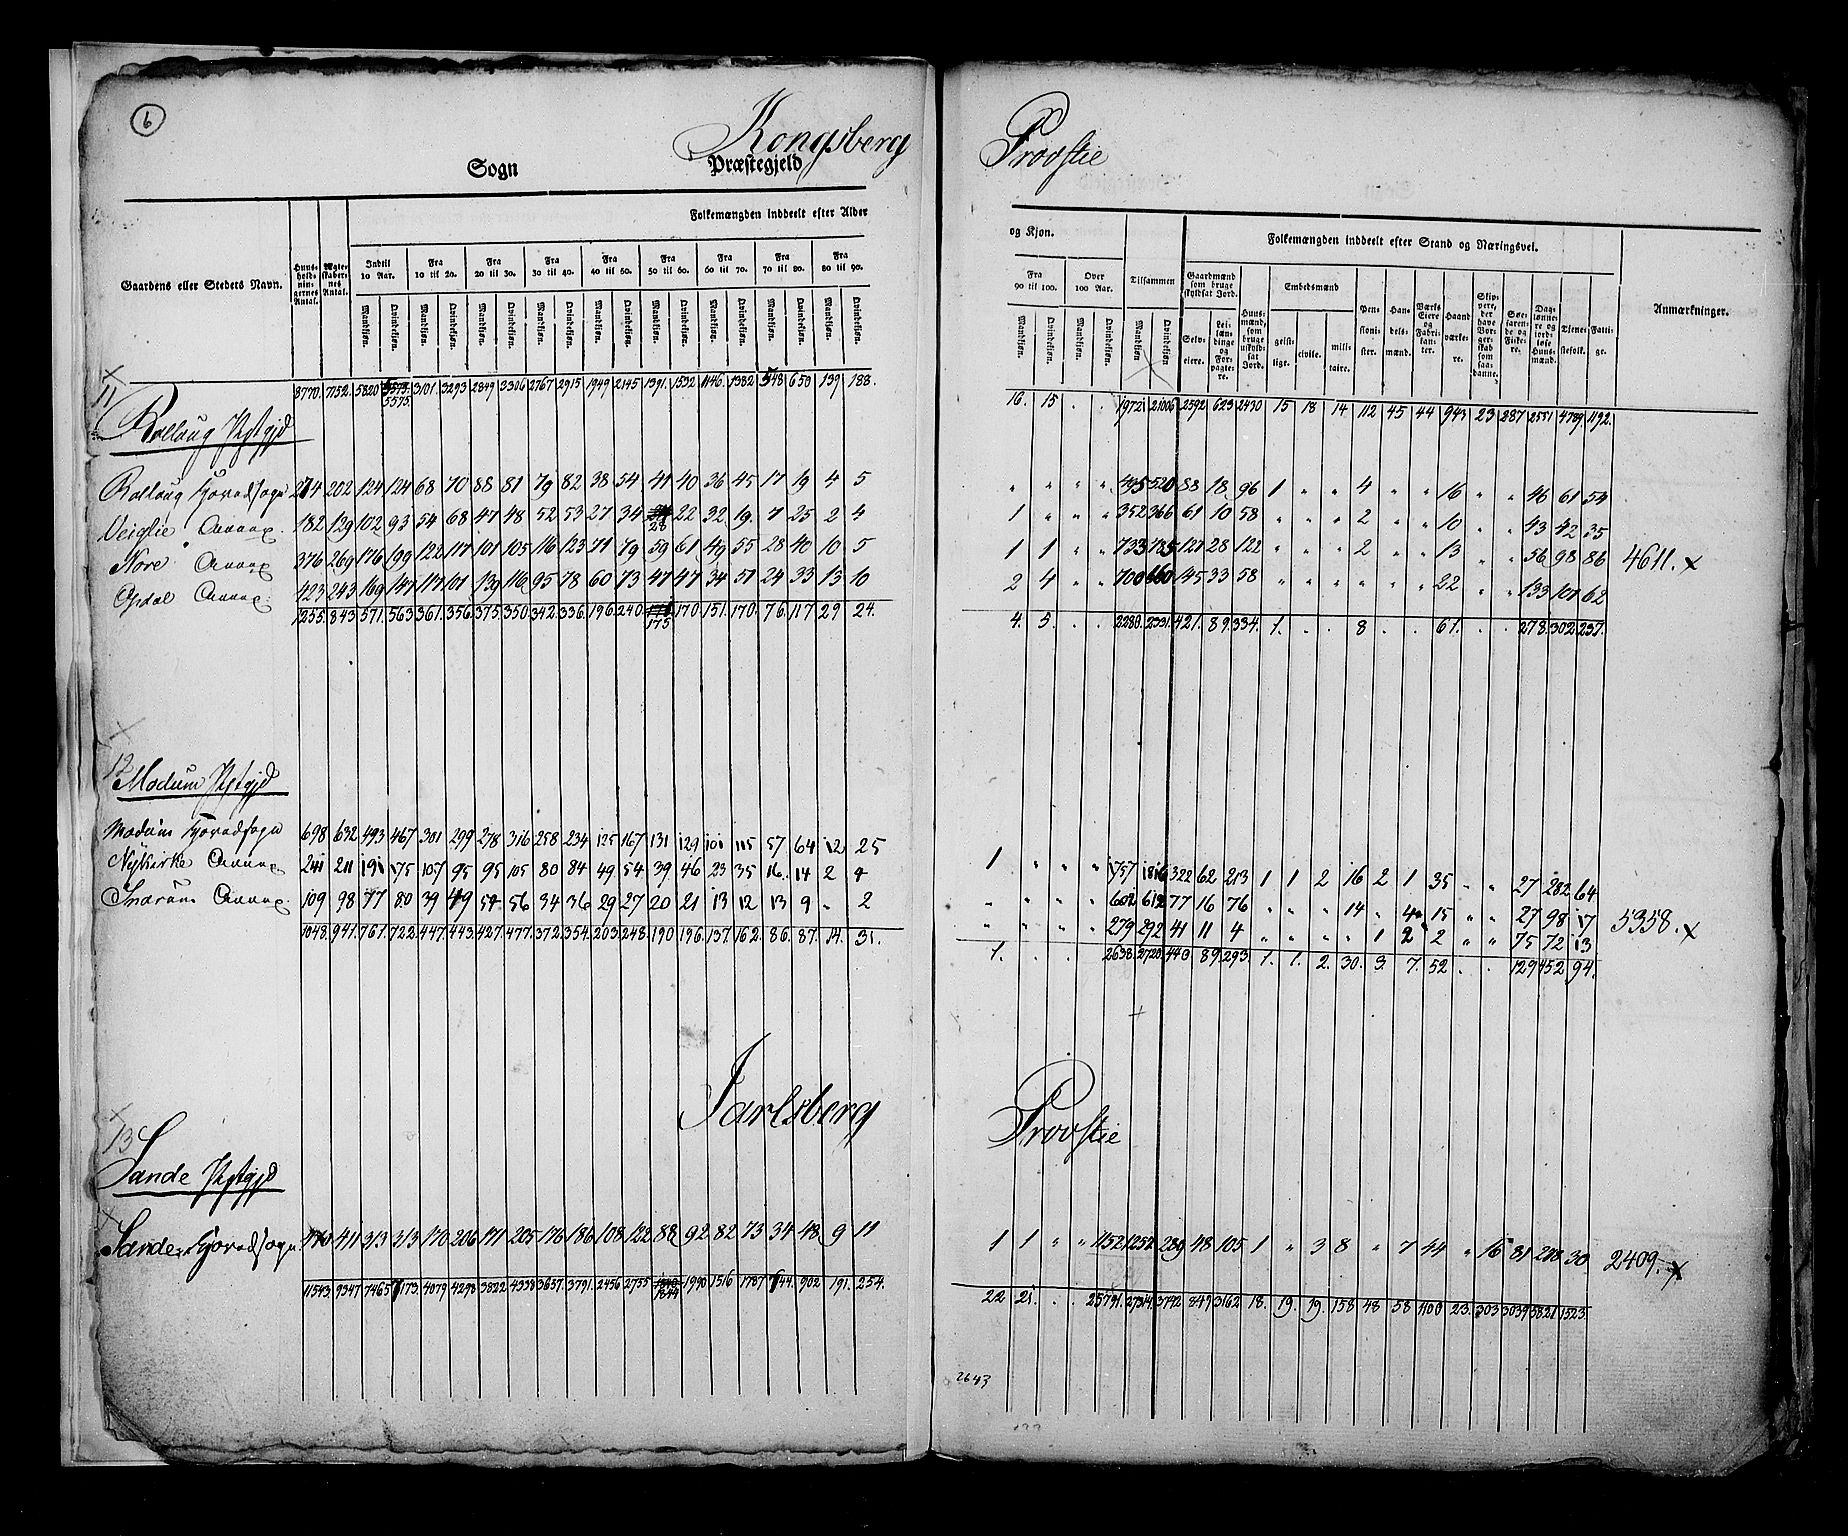 6
Kongsberg Provstie
Sogn Præstegjeld
Gaardens eller Stedets Navn.
Huusholdningernes Antal.
Ægteskabernes Antal.
Folkemængden inddeelt efter Alder og Kjøn.
Indtil 10 Aar. Fra 10 til 20. Fra 20 til 30. Fra 30 til 40. Fra 40 til 50. Fra 50 til 60. Fra 60 til 70. Fra 70 til 80. Fra 80 til 90. Fra 90 til 100. Over 100 Aar. Tilsammen
Mandkjøn. Qvindekjøn.
Folkemængden inddeelt efter Stand og Næringsvei.
Gaardmænd som bruge skyldsat Jord.
Selveiere. Leilændinge og Forpagtere.
Huusmænd, som bruge uskyldsat Jord.
Embedsmænd
geistlige. civile. militaire.
Pensionister. Handelsmænd. Værks Eiere og Fabrikanter. Haandværkere. Skippere, der have Borgerskab som saadanne. Søefarende og Fiskere. Daglønnere og jordløse Huusmænd. Tjenestefolk. Fattige.
Anmærkninger.
8770. 7152. 5820 5575. 3101. 3293 2849 3306 2767 2915 1949 2145 1391. 1532 1146. 1382 548 650 139 188. 16. 15 . . 19721 21006 2592 623 2430 15 18 14 112 45 44 943 23 287 2551 4789 1192.
11
Rollaug Pstgjd
Rollaug Hovedsogn 274 202 124 124 68 70 88 81 79 82 38 54 41 40 36 45 17 19 4 5 " " " " 495 520 88 18 96 1 " " 4 " " 16 " " 46 61 54
Veiglie Annex 182 129 102 93 54 68 47 48 52 53 27 34 28 22 32 19 7 25 2 4 1 " " " 352 366 61 10 58 " " " 2 " " 10 " " 43 42 35
Nore Annex 376 269 176 199 122 117 101 105 116 123 71 79 59 61 49 55 28 40 10 5 1 1 " " 733 785 127 28 122 " " " 2 " " 13 " " 56 98 86 4611. x
Opdal Annex 423 243 169 147 117 101 139 116 95 78 60 73 47 47 34 51 24 33 13 10 2 4 " " 700 660 145 33 58 " " " " " " 22 " " 133 101 62
1255. 843 571. 563 361. 356. 375. 350. 342. 336. 196. 240. 175 170. 151. 170. 76. 117. 29 24. 4. 5. . . 2280. 2331. 421. 89. 334. 1. . . 8 . . 61. . . 278. 302. 237.
12
Modum Pstgjd
Modum Hovedsogn 698 632 493 467 301 299 278 316 258 234 125 167 131 129 101 115 57 64 12 25 1 " " " 1757 1816 322 62 213 1 1 2 16 2 1 35 " " 27 282 64
Nykirke Annex 241 211 191 175 107 95 95 105 80 84 49 54 39 46 23 35 16 14 2 4 " " " " 602 612 77 16 76 " " " 14 " 4 15 " " 27 98 17 5358. x
Snarum Annex. 109 98 77 80 39 49 54 56 34 36 29 27 20 21 13 12 13 9 " 2 " " " " 279 292 41 11 4 " " " " 1 2 2 " " 75 72 13
1048. 941. 761. 722. 447. 443. 427. 477. 372. 354. 203. 248. 190 196. 137. 162. 86. 87. 14. 31. 1. . . . 2638. 2720. 440. 89 293. 1. 1. 2. 30. 3. 7. 52 . . 129 452 94.
Jarlsberg Provstie
13
Sande Pstgjd
Sande Hovedsogn 470 411 313 313 170 206 171 205 176 186 108 122 88 92 82 73 34 48 9 11 1 1 " " 1152 1257 289 48 105 1 " 3 8 " 7 44 " 16 81 278 30 2409. x
11543. 9347 7465 7173. 4079 4298 3822 4338 3657. 3791. 2456 2755 1844 1990 1516 1787 744. 902 191. 254. 22 21. . . 25791. 27314. 3742 849 3162 18. 19. 19. 158 48 58 1100 23. 303 3039 5821 1523.
2643